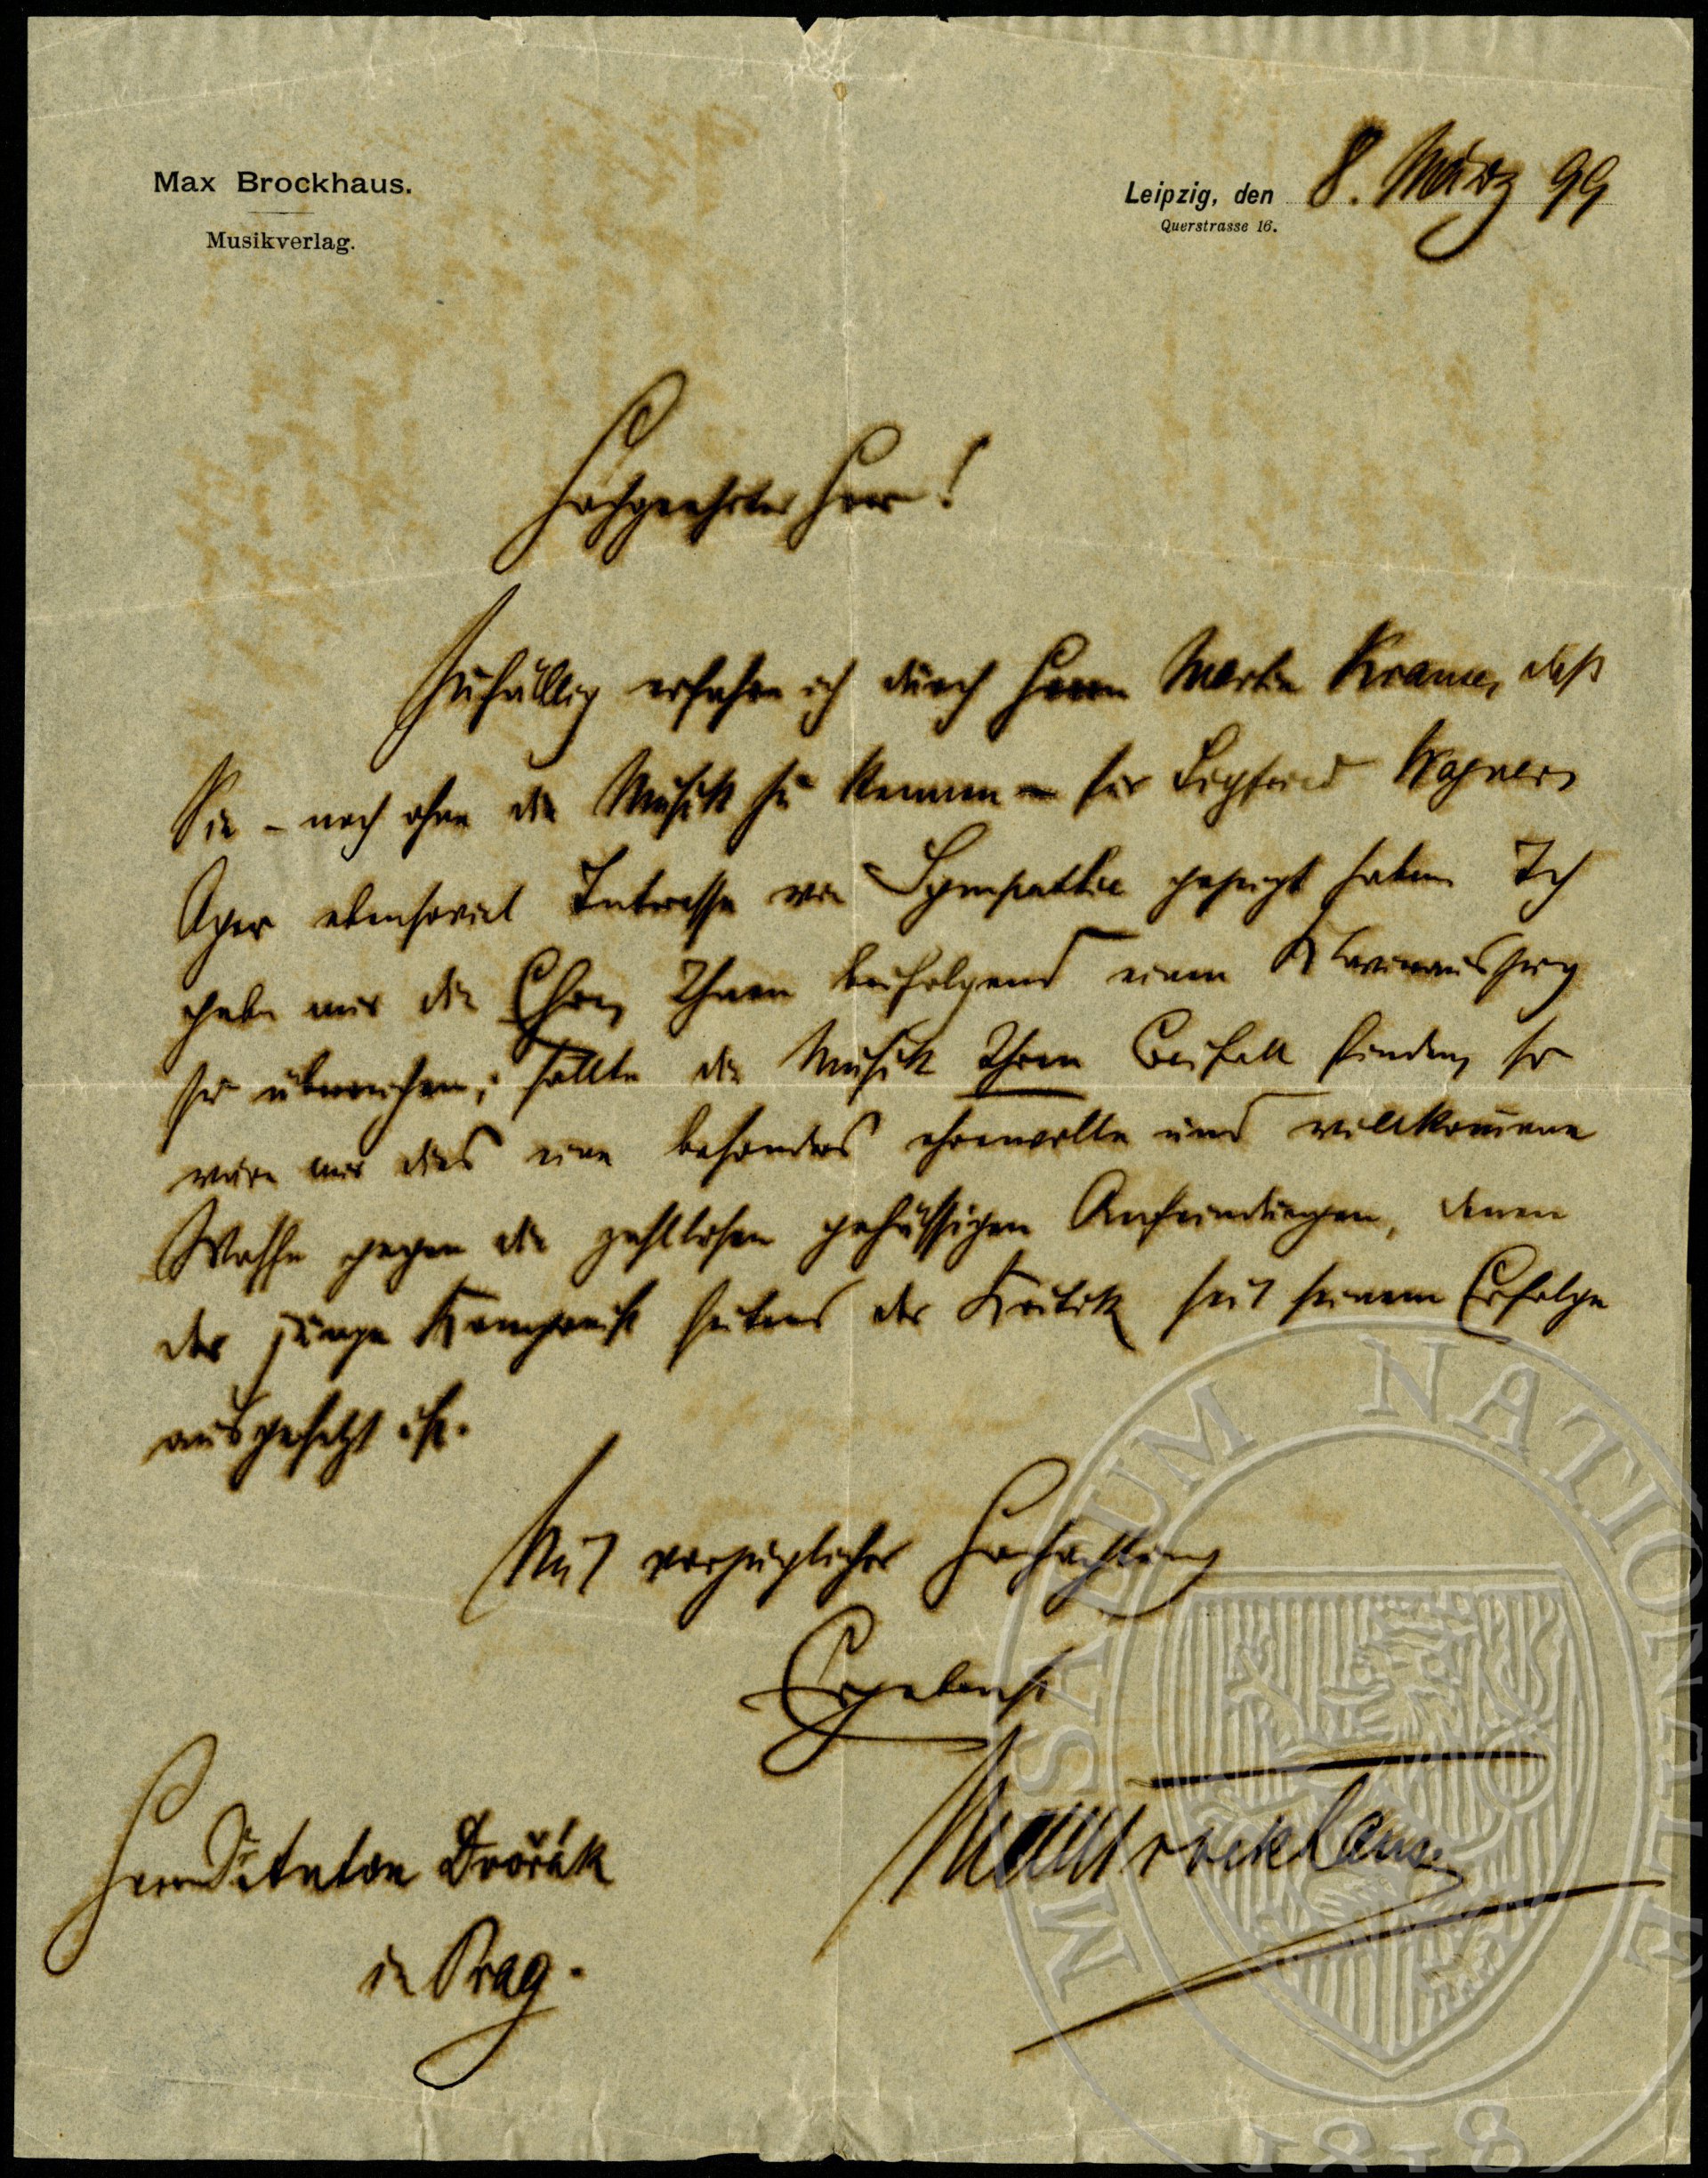 Max Brockhaus.
Musikverlag.
Leipzig, den 8. März 99
Querstrasse 16.
Hochgeehrter Herr!
Zufällig erfahre ich durch Herrn Martin Krause, daß
Sie – noch ohne die Musik zu kennen – für Siegfried Wagners
Oper ebensoviel Interesse wie Sympathie gezeigt haben. Ich
gebe mir die Ehre, Ihnen beifolgend einen Klavierauszug
zu überreichen; sollte die Musik Ihren Beifall finden, so
wäre mir dies eine besonders ehrenvolle und willkom̅ene
Waffe gegen die zahllosen gehässigen Anfeindungen, denen
der junge Komponist seitens der Kritik seit seinem Erfolge
ausgesetzt ist.
Mit vorzüglicher Hochachtung
Ergebenst
Max Brockhaus.
Herrn Dr Anton Dvořák
in Prag.
MUSAEUM NATIONALE
1818